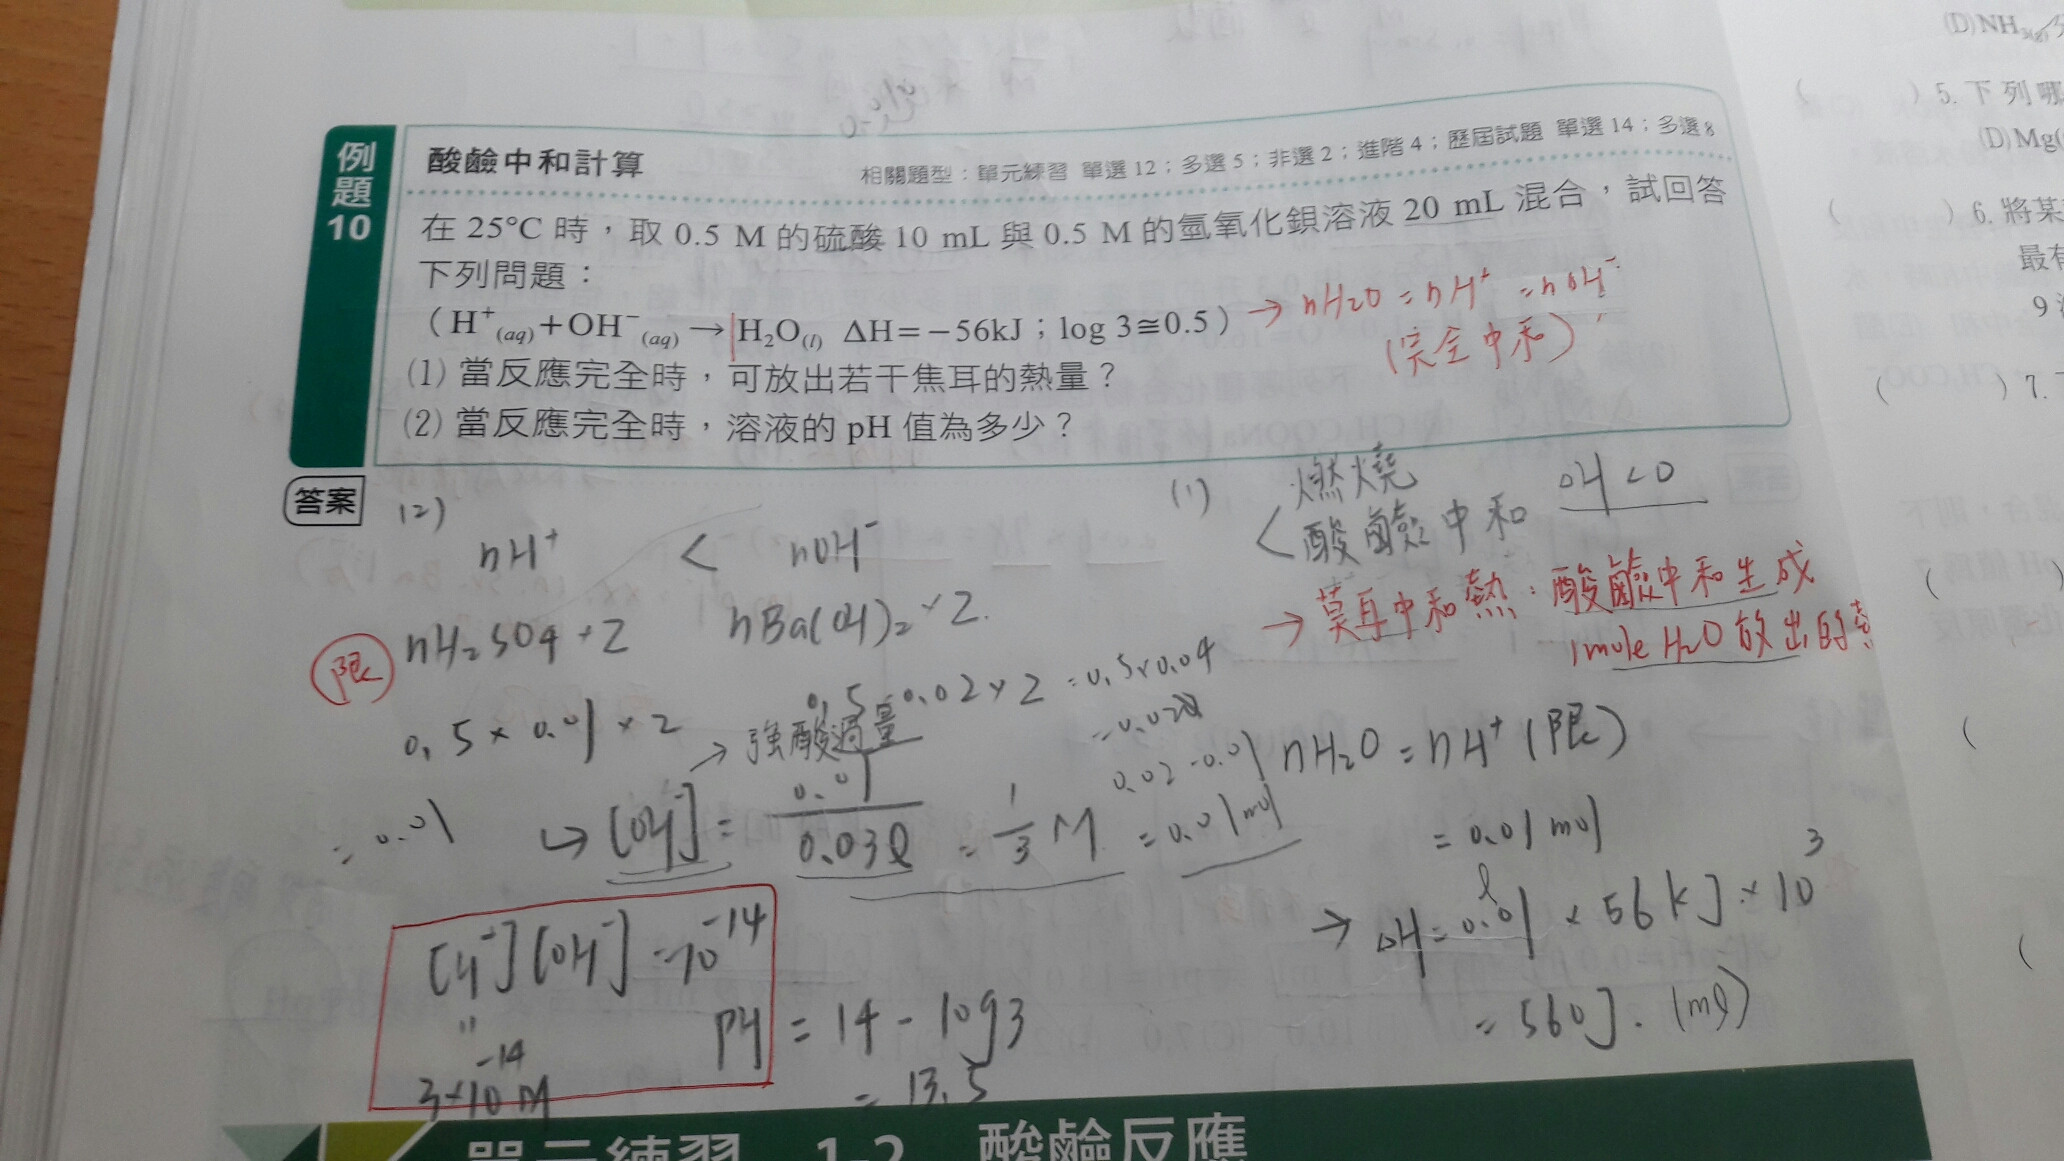 例題10
酸鹼中和計算
相關題型：單元練習 單選 12；多選 5；非選 2；進階 4；歷屆試題 單選 14；多選 8
在 25°C 時，取 0.5 M 的硫酸 10 mL 與 0.5 M 的氫氧化鋇溶液 20 mL 混合，試回答
下列問題：
（H⁺(aq)+OH⁻(aq) → H₂O(l) ΔH=−56kJ；log 3≅0.5）
→ nH2O = nH⁺ = nOH⁻
(完全中和)
(1) 當反應完全時，可放出若干焦耳的熱量？
(2) 當反應完全時，溶液的 pH 值為多少？
答案
(2)
nH⁺ < nOH⁻
限
nH₂SO4×2 nBa(OH)₂×2
0.5×0.01×2
0.5×0.02×2 = 0.5×0.04
=0.02
=0.01
→ 強酸過量
0.02-0.01
=0.01mol
↪ [OH⁻] = 0.01/0.03ℓ = 1/3 M
[H⁺][OH⁻]=10⁻¹⁴
"
3×10⁻¹⁴M
PH = 14 - log3
= 13.5
(1)
< 燃燒
酸鹼中和 ΔH<0
→ 莫耳中和熱：酸鹼中和生成
1mole H₂O 放出的
nH₂O = nH⁺ (限)
= 0.01 mol
→ ΔH = 0.01 × 56kJ × 10³
= 560J.
單元練習 1-2 酸鹼反應
(D)NH₃(g)
) 5. 下列哪
(D)Mg(
( ) 6. 將某
最有
9
( ) 7.
(
(
(